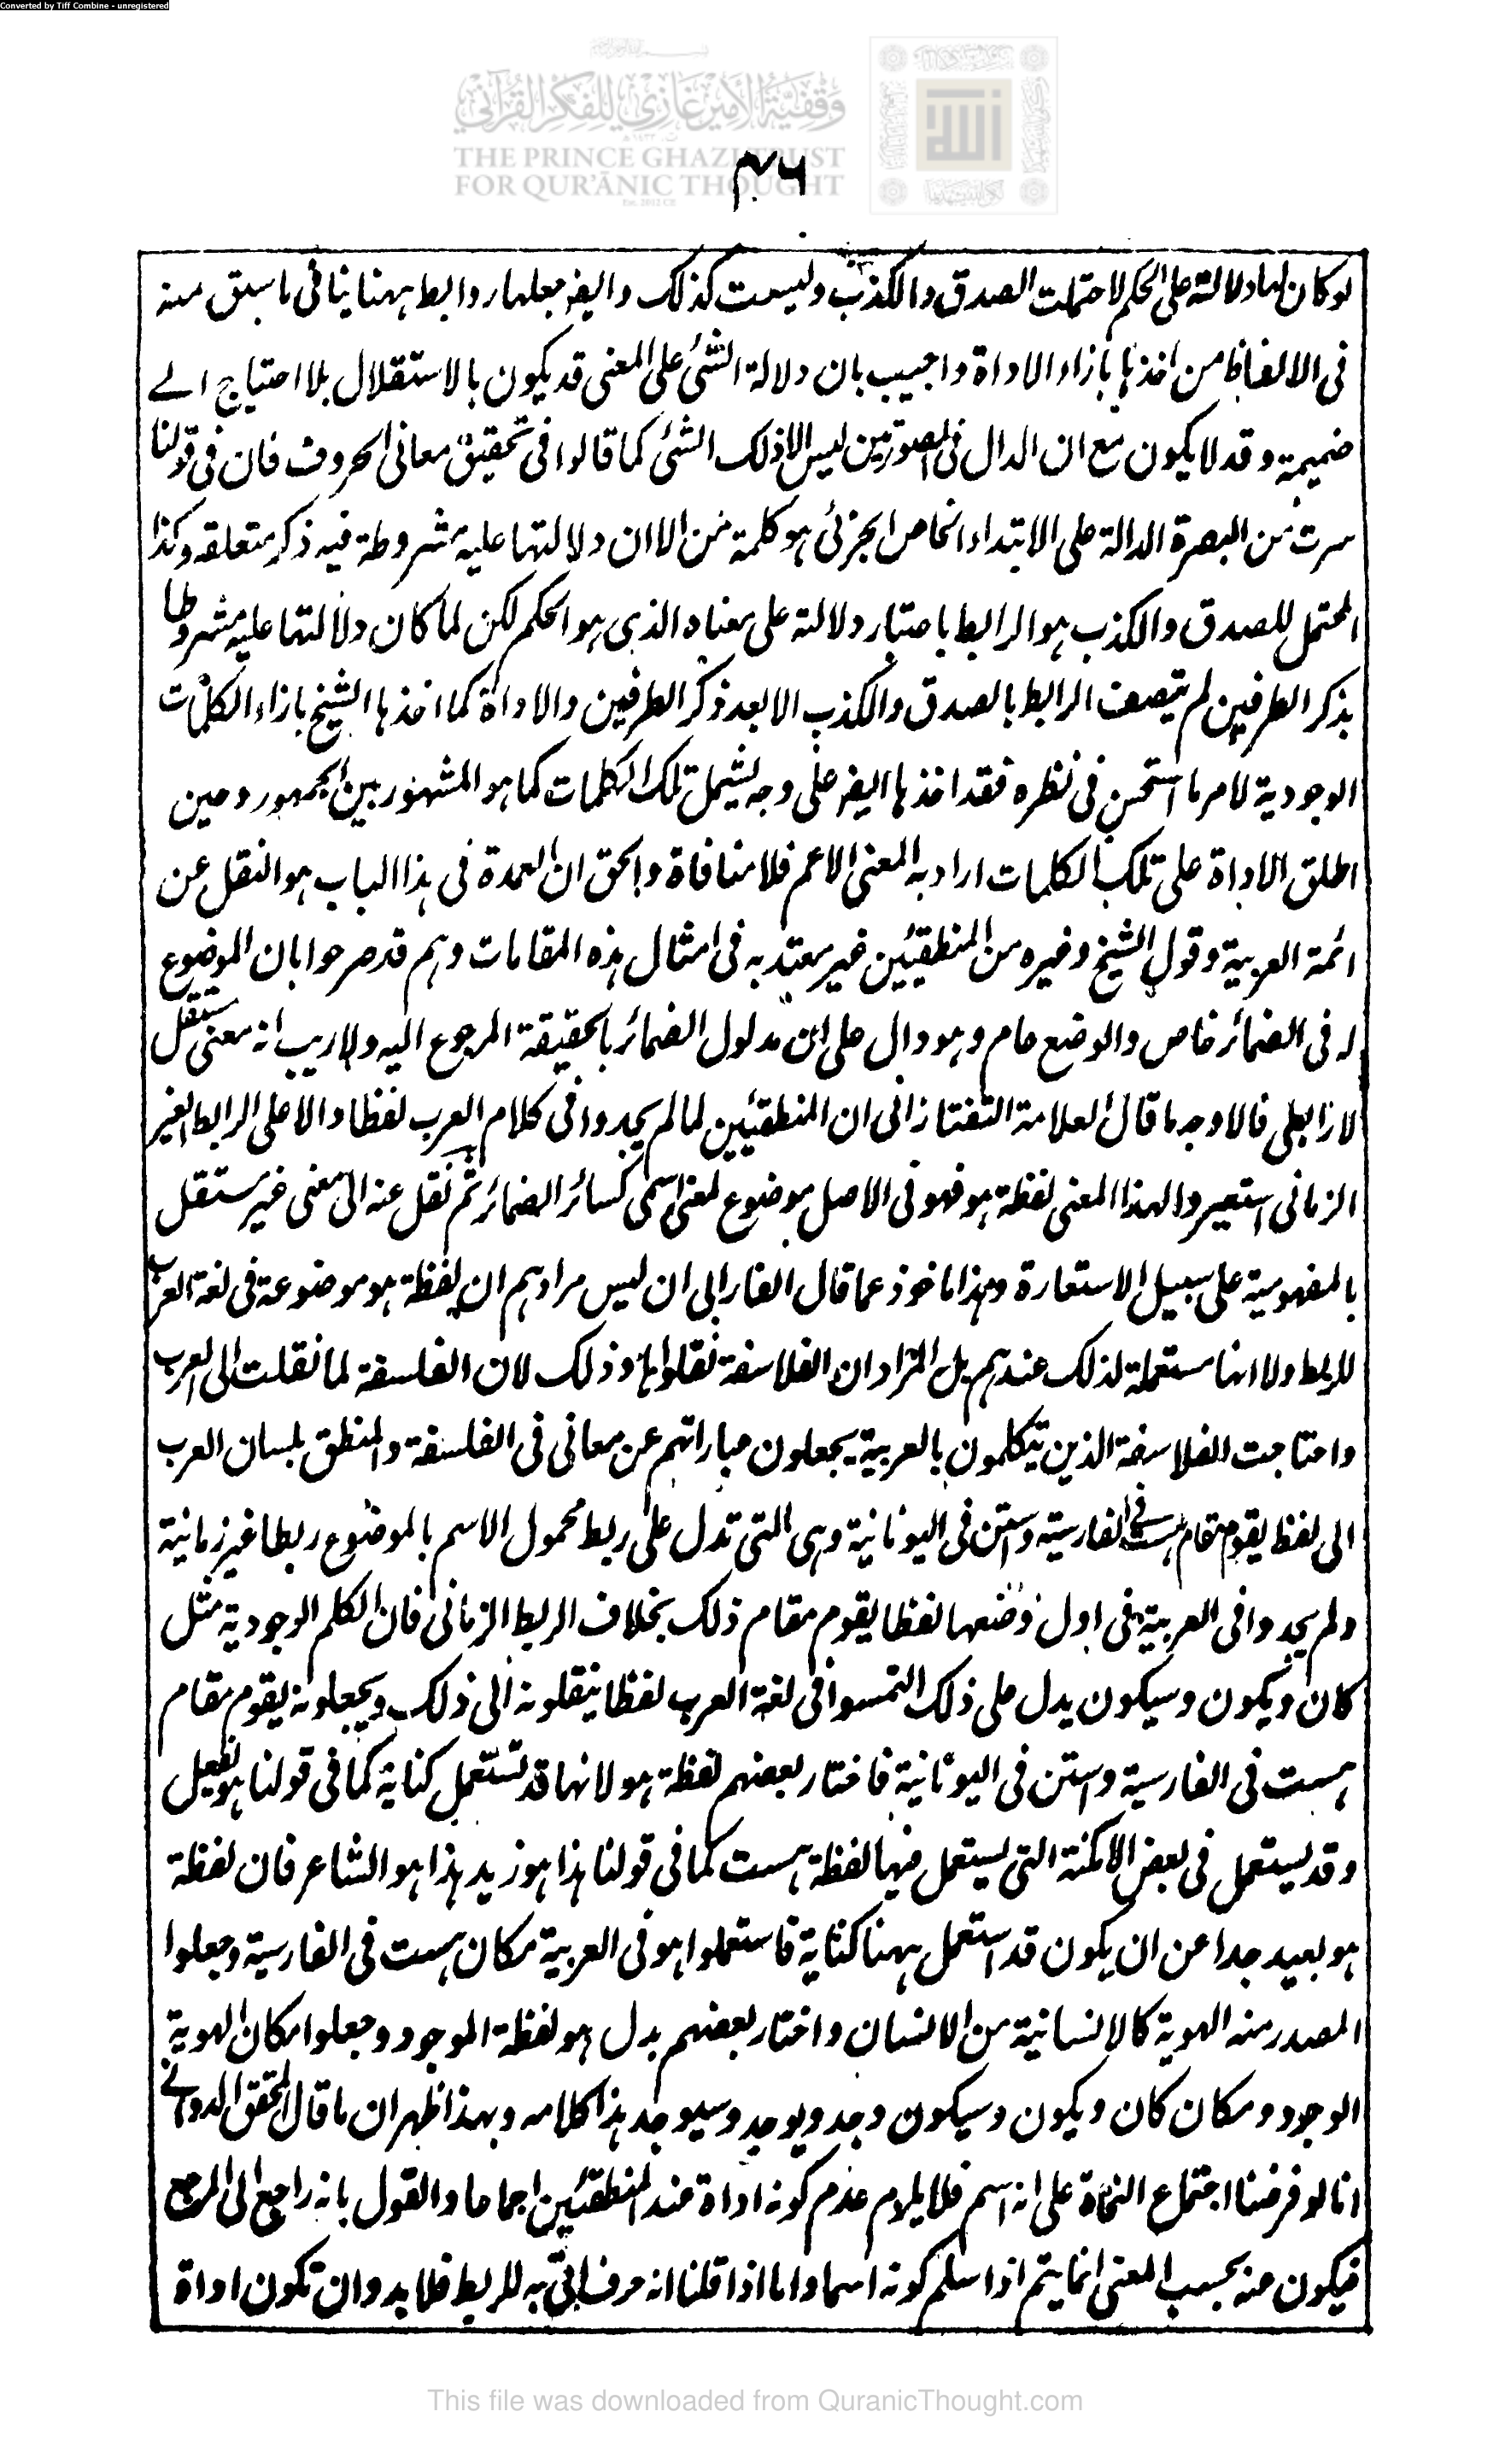 Converted by Tiff Combine - unregistered
وقفية الأمير غازي للفكر القرآني
THE PRINCE GHAZI TRUST
FOR QUR'ĀNIC THOUGHT
لو كان لها دلالة على الحكم لاحتملت الصدق والكذب وليست كذلك وايضا جعلها روابط ههنا ينافى ما سبق منه
فى الالفاظ من اخذها بازاء الاداة واجيب بان دلالة الشئ على المعنى قد يكون بالاستقلال بلا احتياج الى
ضميمة وقد لا يكون مع ان الدال فى الصورتين ليس الا ذلك الشئ كما قالوا فى تحقيق معانى الحروف فان فى قولنا
سرت من البصرة الدالة على الابتداء الخاص الجزئى هو كلمة من الا ان دلالتها عليه مشروطة فيه ذكر متعلقه وكذا
المحتمل للصدق والكذب هو الرابط باعتبار دلالته على معناه الذى هو الحكم لكن لما كان دلالتها عليه مشروطا
بذكر الطرفين لم يتصف الرابط بالصدق والكذب الا بعد ذكر الطرفين والاداة كما اخذها الشيخ بازاء الكلمات
الوجودية لامر ما استحسن فى نظره فقد اخذها ايضا على وجه يشمل تلك الكلمات كما هو المشهور بين الجمهور وحين
اطلق الاداة على تلك الكلمات اراد به المعنى الاعم فلا منافاة والحق ان العمدة فى هذا الباب هو النقل عن
ائمة العربية وقول الشيخ وغيره من المنطقيين غير معتد به فى امثال هذه المقامات وهم قد صرحوا بان الموضوع
له فى الضمائر خاص والوضع عام وهو دال على ان مدلول الضمائر بالحقيقة المرجوع اليه ولا ريب انه معنى مستقل
لا رابطى فالاوجه ما قال العلامة التفتازانى ان المنطقيين لما لم يجدوا فى كلام العرب لفظا دالا على الرابط الغير
الزمانى استعيروا لهذا المعنى لفظة هو فهو فى الاصل موضوع لمعنى اسمى كسائر الضمائر ثم نقل عنه الى معنى غير مستقل
بالمفهومية على سبيل الاستعارة وهذا ماخوذ عما قال الفارابى ان ليس مرادهم ان لفظة هو موضوعة فى لغة العرب
للربط ولا انها مستعملة لذلك عندهم بل المراد ان الفلاسفة نقلوا لها وذلك لان الفلسفة لما نقلت الى العرب
واحتاجت الفلاسفة الذين يتكلمون بالعربية يجعلون عباراتهم عن معانى فى الفلسفة والمنطق بلسان العرب
الى لفظ يقوم مقام هست فى الفارسية واستن فى اليونانية وهى التى تدل على ربط محمول الاسم بالموضوع ربطا غير زمانية
ولم يجدوا فى العربية فى اول وضعها لفظا يقوم مقام ذلك بخلاف الربط الزمانى فان الكلم الوجودية مثل
كان ويكون وسيكون يدل على ذلك التمسوا فى لغة العرب لفظا ينقلونه الى ذلك ويجعلونه يقوم مقام
هست فى الفارسية واستن فى اليونانية فاختار بعضهم لفظة هو لانها قد تستعمل كناية كما فى قولنا هو يفعل
وقد يستعمل فى بعض الامكنة التى يستعمل فيها لفظة هست كما فى قولنا هذا هو زيد هذا هو الشاعر فان لفظة
هو بعيد جدا عن ان يكون قد استعمل ههنا كناية فاستعملوا هو فى العربية مكان هست فى الفارسية وجعلوا
المصدر منه الهوية كالانسانية من الانسان واختار بعضهم بدل هو لفظة الموجود وجعلوا مكان الهوية
الوجود ومكان كان ويكون وسيكون وجد ويوجد وسيوجد هذا كلامه وبهذا ظهر ان ما قال المحقق الدوانى
انا لو فرضنا اجتماع النحاة على انه اسم فلا يلزم عدم كونه اداة عند المنطقيين اجماعا والقول بانه راجع الى المرجع
فيكون عنه بحسب المعنى انما يتم اذا سلم كونه اسما واما اذا قلنا انه حرف اتى به للربط فلا بد وان تكون اداة
This file was downloaded from QuranicThought.com